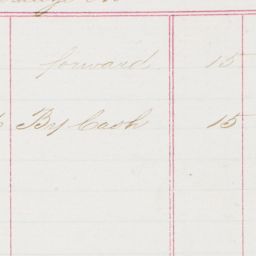 forward 15
By Cash 15